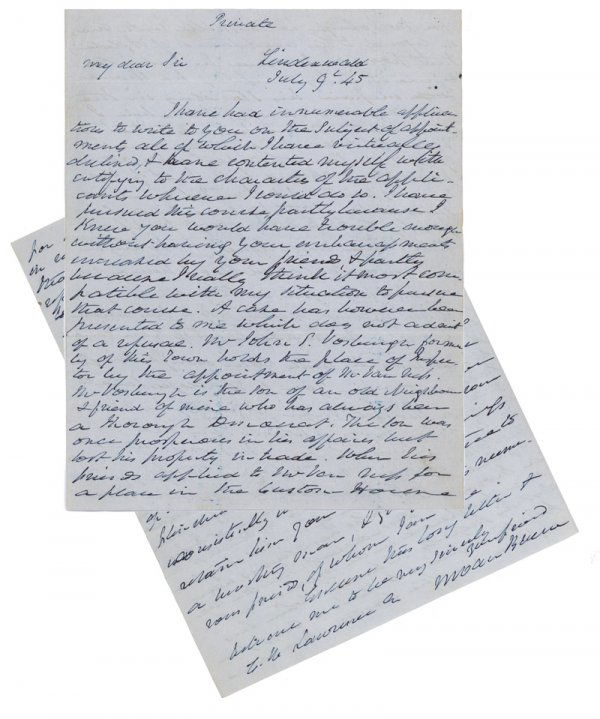 Private
My dear Sir Lindenwald
July 9th 45
I have had innumerable applica
tions to write to you on the subject of appoint
ments all of which I have virtually
declined, & have contented myself with
certifying to the character of the appli-
cants whenever I could do so. I have
pursued this course partly because I
knew you would have trouble enough
without having your embarrassments
increased by your friends & partly
because I really think it most com
patible with my situation to pursue
that course. A case has however been
presented to me which does not admit
of a refusal. Mr John S. Vosburgh former
ly of this Town holds the place of Inspec
tor by the appointment of Mr Van Ness.
Mr Vosburgh is the son of an old Neighbour
& friend of mine who has always been
a thorough Democrat. The son was
once prosperous in his affairs but
lost his property in trade. When his
friends applied to Mr Van Ness for
a place in the Custom House
for
in
consistently
retain him you
a worthy man, &
rous friends, of whom I am
Excuse this long letter &
believe me to be very sincerely
your friend
C. W. Lawrence M Van Buren